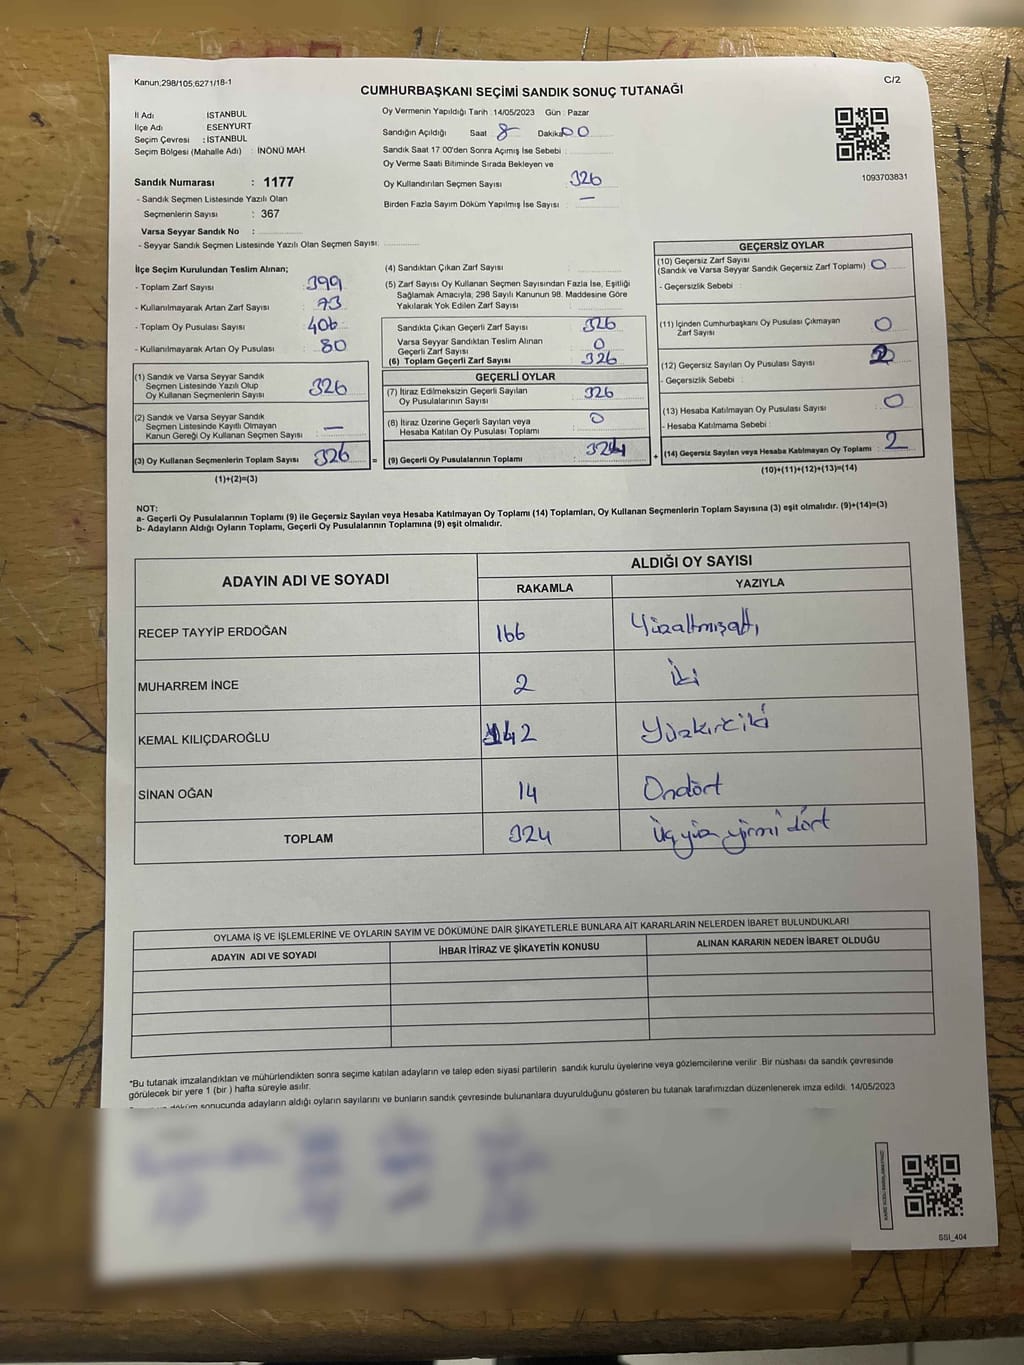 Kanun;298/105;6271/18-1
C/2
CUMHURBAŞKANI SEÇİMİ SANDIK SONUÇ TUTANAĞI
İl Adı İSTANBUL
İlçe Adı ESENYURT
Seçim Çevresi : İSTANBUL
Seçim Bölgesi (Mahalle Adı) : İNÖNÜ MAH.
Sandık Numarası : 1177
- Sandık Seçmen Listesinde Yazılı Olan
Seçmenlerin Sayısı : 367
Varsa Seyyar Sandık No :
- Seyyar Sandık Seçmen Listesinde Yazılı Olan Seçmen Sayısı:
Oy Vermenin Yapıldığı Tarih : 14/05/2023 Gün : Pazar
Sandığın Açıldığı Saat 8 Dakika 00
Sandık Saat 17:00'den Sonra Açımış İse Sebebi :
Oy Verme Saati Bitiminde Sırada Bekleyen ve
Oy Kullandırılan Seçmen Sayısı : 326
Birden Fazla Sayım Döküm Yapılmış İse Sayısı : —
1093703831
İlçe Seçim Kurulundan Teslim Alınan;
- Toplam Zarf Sayısı : 399
- Kullanılmayarak Artan Zarf Sayısı : 73
- Toplam Oy Pusulası Sayısı : 406
- Kullanılmayarak Artan Oy Pusulası : 80
(1) Sandık ve Varsa Seyyar Sandık
Seçmen Listesinde Yazılı Olup
Oy Kullanan Seçmenlerin Sayısı : 326
(2) Sandık ve Varsa Seyyar Sandık
Seçmen Listesinde Kayıtlı Olmayan
Kanun Gereği Oy Kullanan Seçmen Sayısı : —
(3) Oy Kullanan Seçmenlerin Toplam Sayısı : 326
(1)+(2)=(3)
=
(4) Sandıktan Çıkan Zarf Sayısı :
(5) Zarf Sayısı Oy Kullanan Seçmen Sayısından Fazla İse, Eşitliği
Sağlamak Amacıyla, 298 Sayılı Kanunun 98. Maddesine Göre
Yakılarak Yok Edilen Zarf Sayısı :
Sandıkta Çıkan Geçerli Zarf Sayısı : 326
Varsa Seyyar Sandıktan Teslim Alınan
Geçerli Zarf Sayısı : 0
(6) Toplam Geçerli Zarf Sayısı : 326
GEÇERLİ OYLAR
(7) İtiraz Edilmeksizin Geçerli Sayılan
Oy Pusulalarının Sayısı : 326
(8) İtiraz Üzerine Geçerli Sayılan veya
Hesaba Katılan Oy Pusulası Toplamı : 0
(9) Geçerli Oy Pusulalarının Toplamı : 324
+
GEÇERSİZ OYLAR
(10) Geçersiz Zarf Sayısı
(Sandık ve Varsa Seyyar Sandık Geçersiz Zarf Toplamı) : 0
- Geçersizlik Sebebi :
(11) İçinden Cumhurbaşkanı Oy Pusulası Çıkmayan
Zarf Sayısı : 0
(12) Geçersiz Sayılan Oy Pusulası Sayısı : 2
- Geçersizlik Sebebi :
(13) Hesaba Katılmayan Oy Pusulası Sayısı : 0
- Hesaba Katılmama Sebebi :
(14) Geçersiz Sayılan veya Hesaba Katılmayan Oy Toplamı : 2
(10)+(11)+(12)+(13)=(14)
NOT:
a- Geçerli Oy Pusulalarının Toplamı (9) ile Geçersiz Sayılan veya Hesaba Katılmayan Oy Toplamı (14) Toplamları, Oy Kullanan Seçmenlerin Toplam Sayısına (3) eşit olmalıdır. (9)+(14)=(3)
b- Adayların Aldığı Oyların Toplamı, Geçerli Oy Pusulalarının Toplamına (9) eşit olmalıdır.
ADAYIN ADI VE SOYADI
ALDIĞI OY SAYISI
RAKAMLA YAZIYLA
RECEP TAYYİP ERDOĞAN 166 Yüzaltmışaltı
MUHARREM İNCE 2 İki
KEMAL KILIÇDAROĞLU 142 Yüzkırkiki
SİNAN OĞAN 14 Ondört
TOPLAM 324 Üçyüz yirmi dört
OYLAMA İŞ VE İŞLEMLERİNE VE OYLARIN SAYIM VE DÖKÜMÜNE DAİR ŞİKAYETLERLE BUNLARA AİT KARARLARIN NELERDEN İBARET BULUNDUKLARI
ADAYIN ADI VE SOYADI İHBAR İTİRAZ VE ŞİKAYETİN KONUSU ALINAN KARARIN NEDEN İBARET OLDUĞU
*Bu tutanak imzalandıktan ve mühürlendikten sonra seçime katılan adayların ve talep eden siyasi partilerin sandık kurulu üyelerine veya gözlemcilerine verilir. Bir nüshası da sandık çevresinde
görülecek bir yere 1 (bir ) hafta süreyle asılır.
döküm sonucunda adayların aldığı oyların sayılarını ve bunların sandık çevresinde bulunanlara duyurulduğunu gösteren bu tutanak tarafımızdan düzenlenerek imza edildi. 14/05/2023
SSI_404